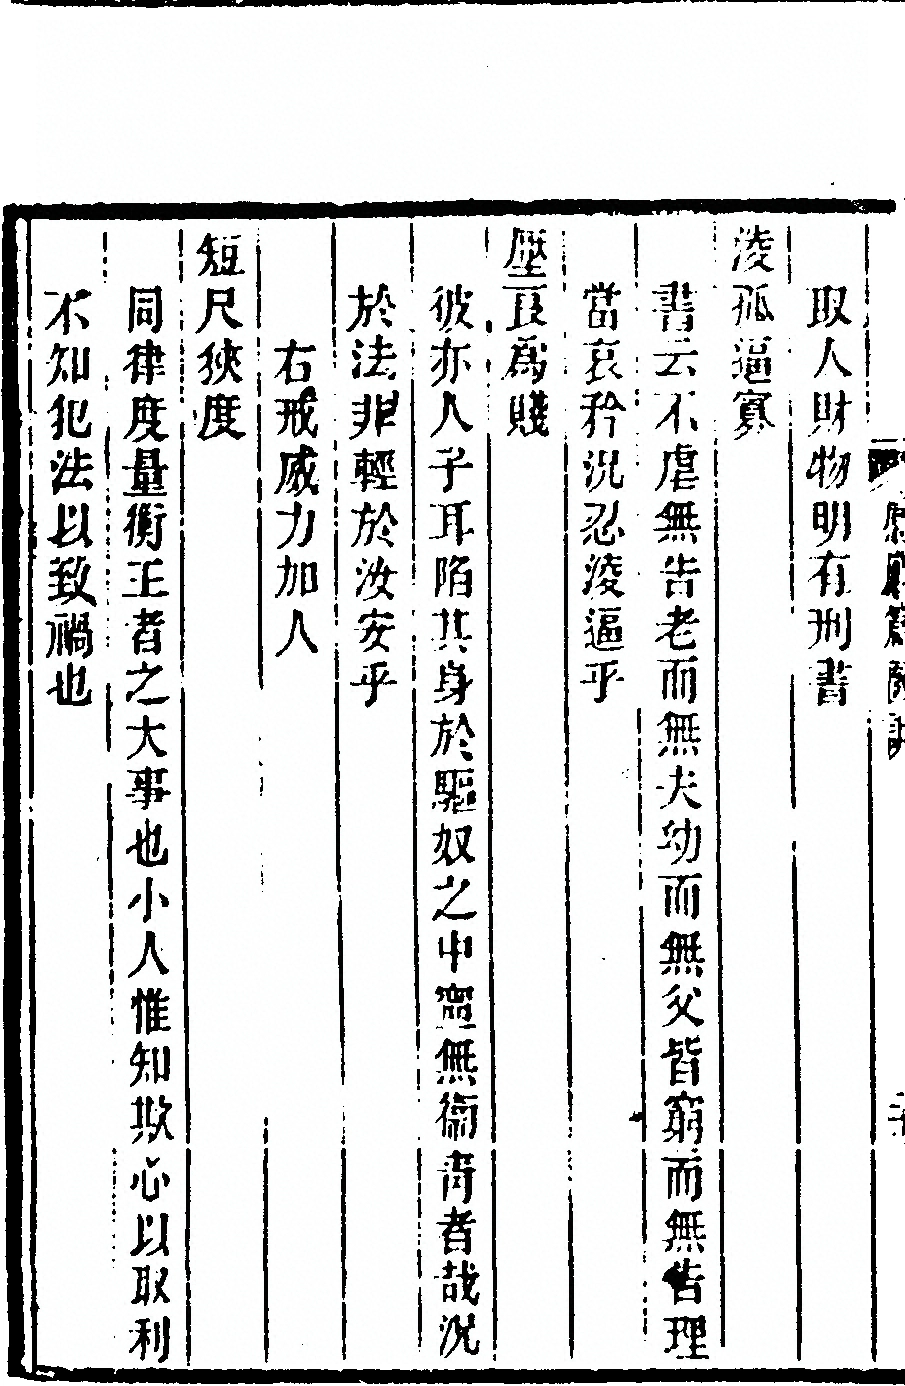 取人財物明有刑書
淩孤逼寡
書云不虐無告老而無夫幼而無父皆窮而無告理
當哀矜況忍淩逼乎
壓良為賤
彼亦人子耳陷其身於驅奴之中寧無衞青者哉況
於法非輕於汝安乎
右戒威力加人
短尺狹度
同律度量衡王者之大事也小人惟知欺心以取利
不知犯法以致禍也